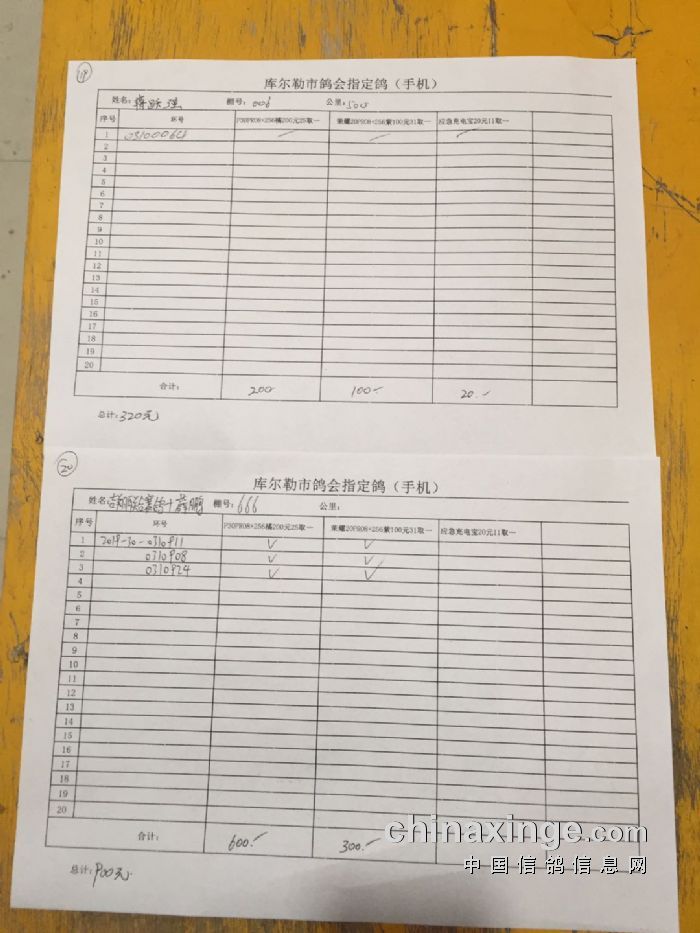 库尔勒市鸽会指定鸽(手机)
姓名: 棚号: 006 公里: 500
序号 环号 P30PRO8+256橘200元25取一 荣耀20PRO8+256紫100元31取一 应急充电宝20元11取一
1
2
3
4
5
6
7
8
9
10
11
12
13
14
15
16
17
18
19
20
合计: 200 100 20
总计:320元
20
库尔勒市鸽会指定鸽(手机)
姓名: 棚号: 666 公里:
序号 环号 P30PRO8+256橘200元25取一 荣耀20PRO8+256紫100元31取一 应急充电宝20元11取一
1 2019-30-0310911 ✓ ✓
2 0310908 ✓ ✓
3 0310924 ✓ ✓
4
5
6
7
8
9
10
11
12
13
14
15
16
17
18
19
20
合计: 600 300
总计:900元
chinaxinge.com
中国信鸽信息网